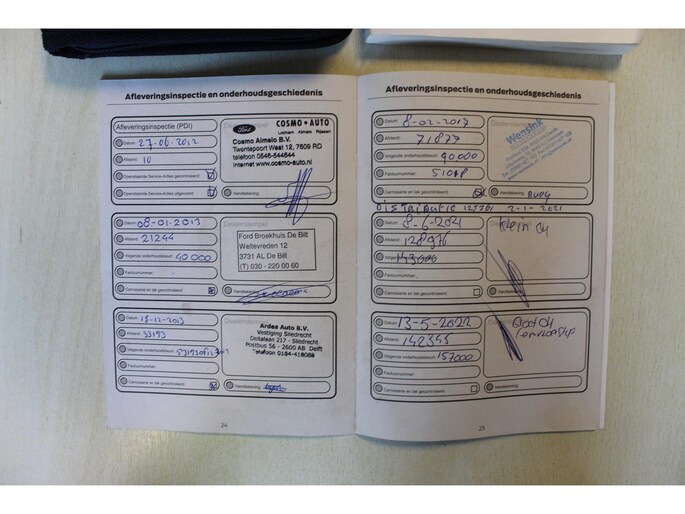 Afleveringsinspectie en onderhoudsgeschiedenis
Afleveringsinspectie (PDI)
Datum: 27-06-2012
Afstand: 10
Openstaande Service-Acties gecontroleerd:
Openstaande Service-Acties uitgevoerd:
Handtekening:
Ford
COSMO • AUTO
Lochem Almelo Rijssen
Cosmo Almelo B.V.
Twentepoort West 12, 7609 RD
telefoon 0546-544644
internet www.cosmo-auto.nl
Datum: 08-01-2013
Afstand: 21244
Volgende onderhoudsbeurt: 40.000
Factuurnummer:
Carrosserie en lak gecontroleerd:
Handtekening:
Ford Broekhuis De Bilt
Weltevreden 12
3731 AL De Bilt
(T) 030 - 220 00 60
Datum: 18-12-2013
Afstand: 33193
Volgende onderhoudsbeurt:
Factuurnummer:
Carrosserie en lak gecontroleerd:
Handtekening:
Ardea Auto B.V.
Vestiging Sliedrecht
Deltalaan 217 - Sliedrecht
Postbus 56 - 2600 AB Delft
Telefoon 0184-418088
24
Afleveringsinspectie en onderhoudsgeschiedenis
Datum: 8-02-2017
Afstand: 71877
Volgende onderhoudsbeurt: 90.000
Factuurnummer:
Carrosserie en lak gecontroleerd:
Handtekening: Rudy
Wensink
Distributie
2-1-2021
Datum: 8-6-2021
Afstand: 128976
143000
Factuurnummer:
Carrosserie en lak gecontroleerd:
Handtekening:
Klein
Datum: 13-5-2022
Afstand: 142345
Volgende onderhoudsbeurt: 157000
Factuurnummer:
Carrosserie en lak gecontroleerd:
Handtekening:
Groot
25